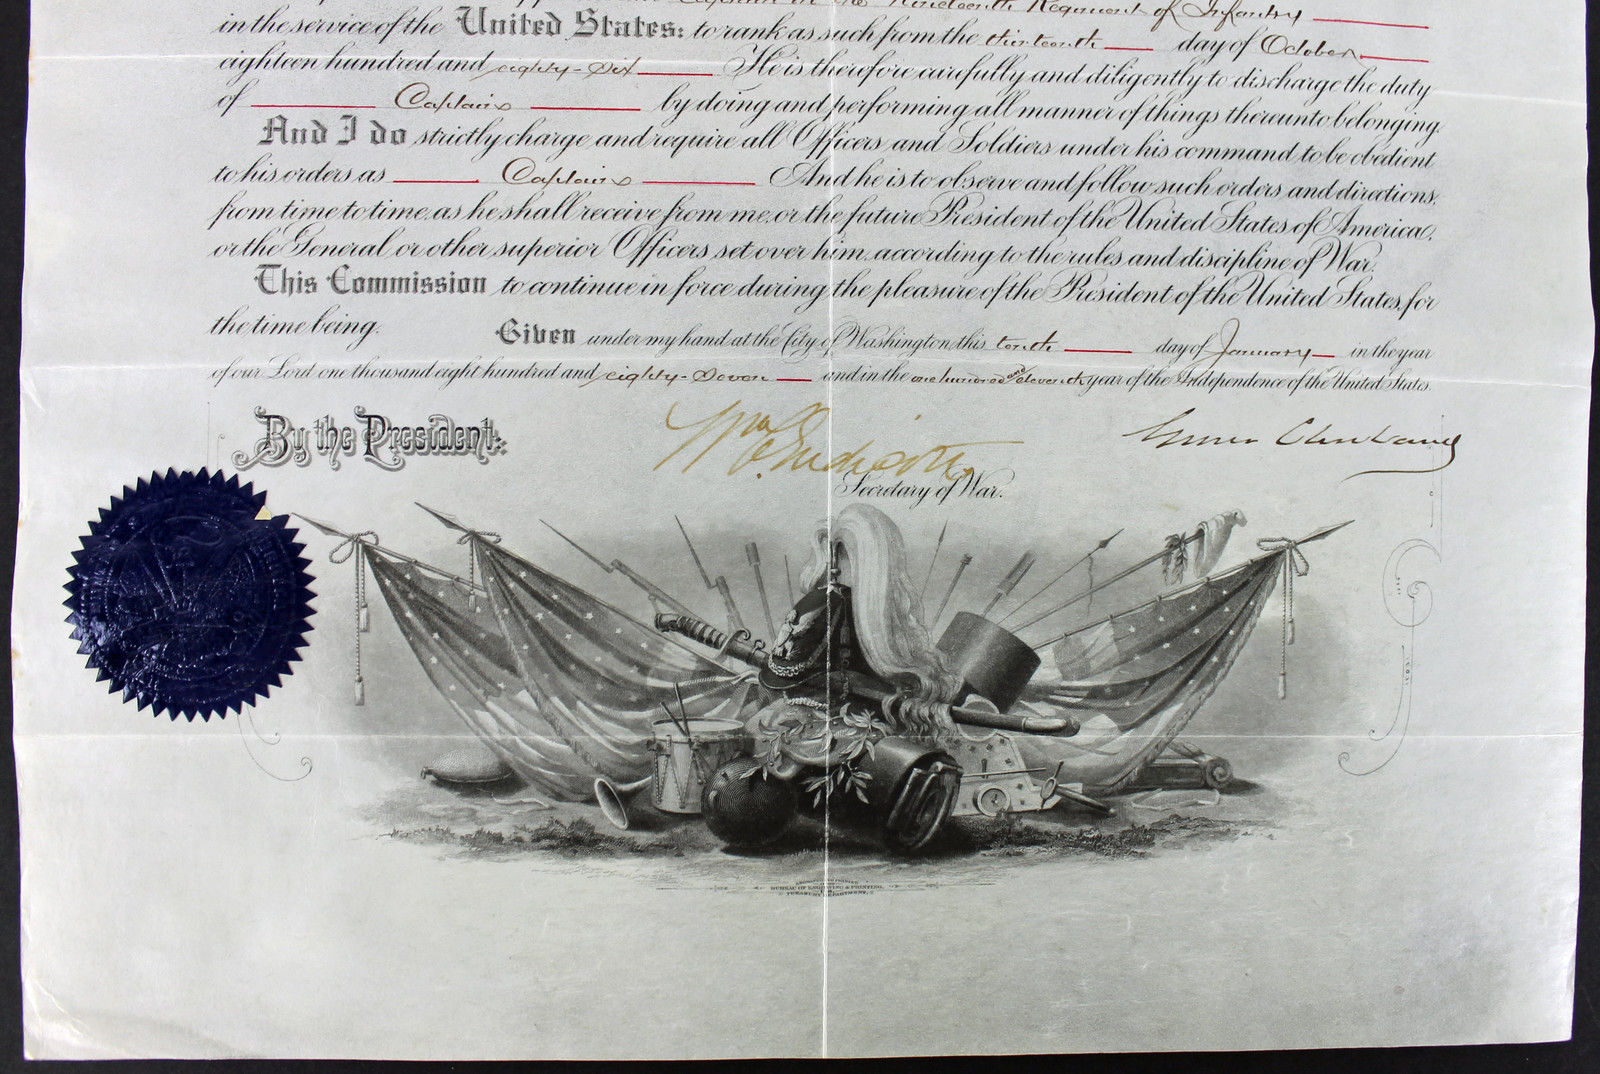 Captain in the Nineteenth Regiment of Infantry
in the service of the United States: to rank as such from the thirteenth day of October
eighteen hundred and eighty-six He is therefore carefully and diligently to discharge the duty
of Captain by doing and performing all manner of things thereunto belonging.
And I do strictly charge and require all Officers and Soldiers under his command to be obedient
to his orders as Captain And he is to observe and follow such orders and directions,
from time to time, as he shall receive from me, or the future President of the United States of America,
or the General or other superior Officers set over him, according to the rules and discipline of War.
This Commission to continue in force during the pleasure of the President of the United States, for
the time being. Given under my hand at the City of Washington, this tenth day of January in the year
of our Lord one thousand eight hundred and eighty-seven and in the one hundred and eleventh year of the Independence of the United States.
By the President: Wm C. Endicott Grover Cleveland
Secretary of War.
BUREAU OF ENGRAVING & PRINTING,
TREASURY DEPARTMENT.